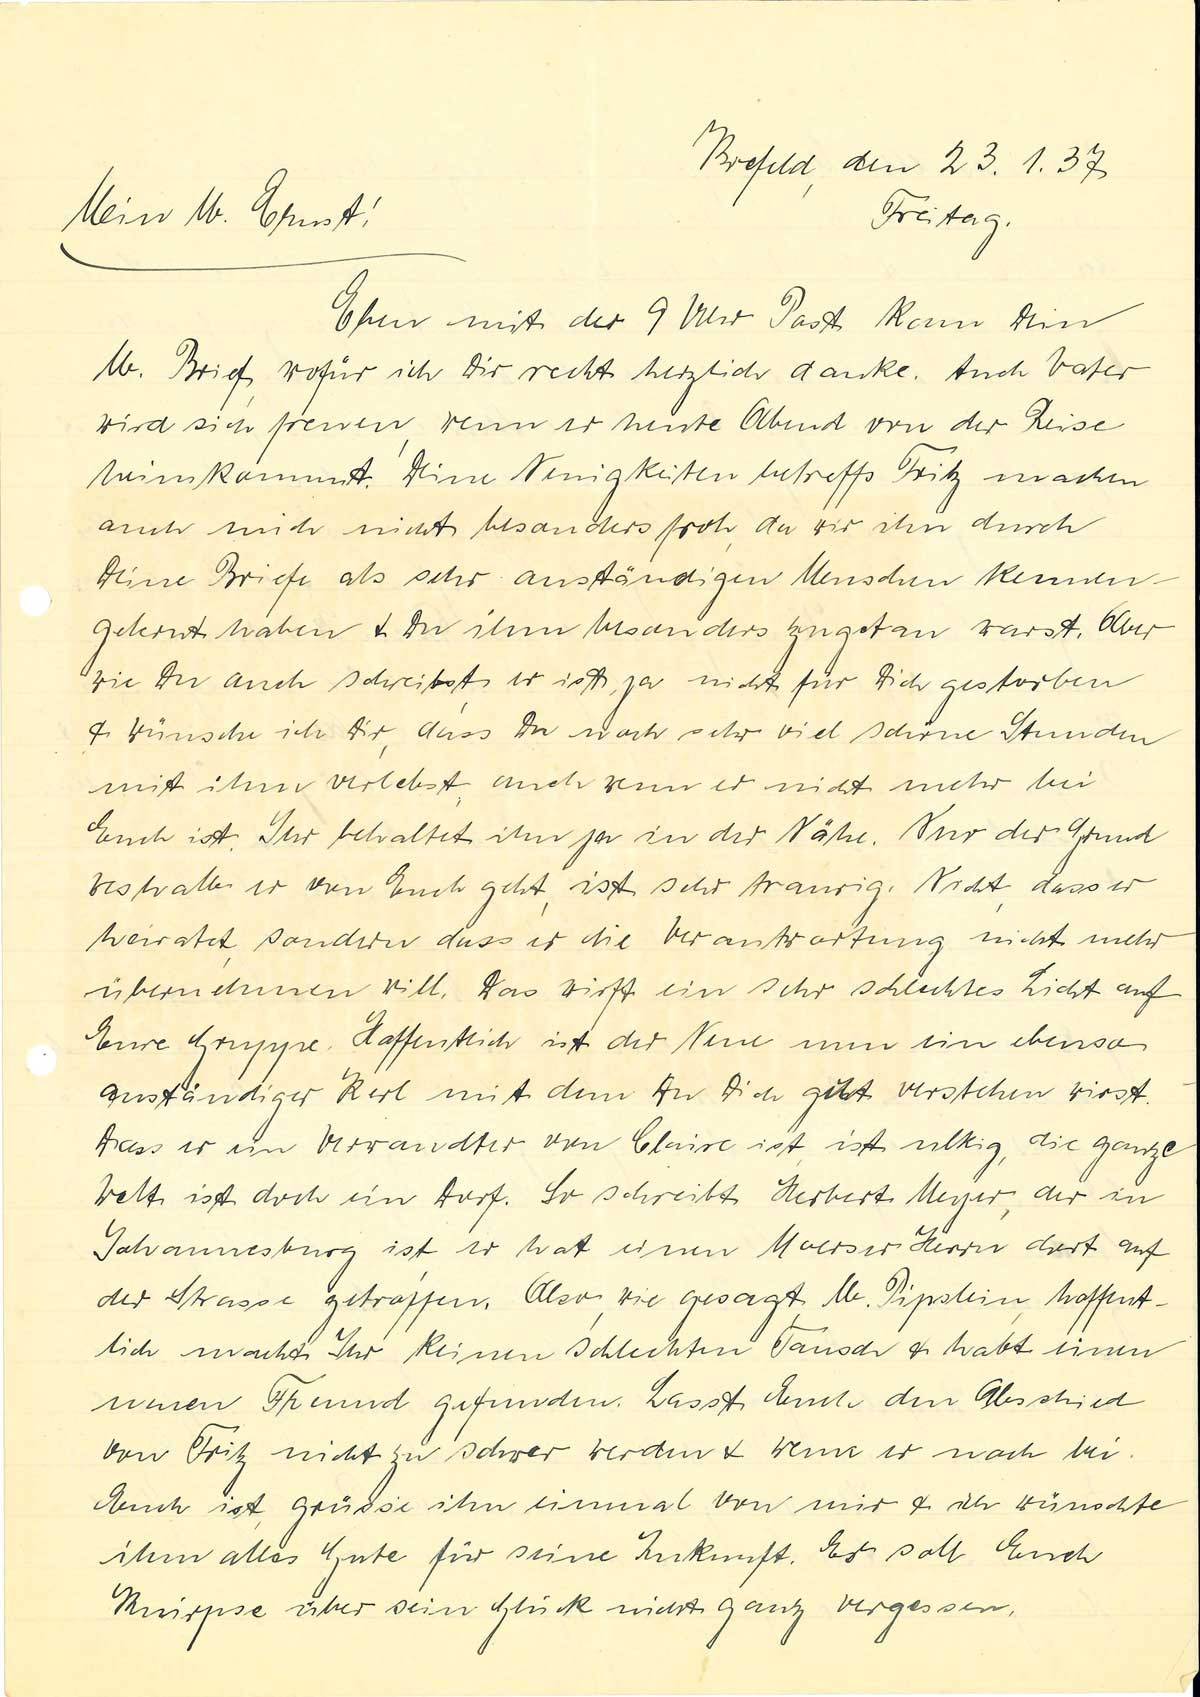 Krefeld, den 23. 1. 37
Freitag.
Mein lb. Ernst!
Eben mit der 9 Uhr Post kam Dein
lb. Brief, wofür ich Dir recht herzlich danke. Auch Vater
wird sich freuen, wenn er heute Abend von der Reise
heimkommt. Deine Neuigkeiten betreffs Fritz machen
auch mich nicht besonders froh, da wir ihn durch
Deine Briefe als sehr anständigen Menschen kennen-
gelernt haben & Du ihm besonders zugetan warst. Aber
wie Du auch schreibst, er ist ja nicht für Dich gestorben
& wünsche ich Dir, dass Du noch sehr viel schöne Stunden
mit ihm verlebst, auch wenn er nicht mehr bei
Euch ist. Ihr behaltet ihn ja in der Nähe. Nur der Grund
weshalb er von Euch geht, ist sehr traurig. Nicht, dass er
heiratet, sondern dass er die Verantwortung nicht mehr
übernehmen will. Das wirft ein sehr schlechtes Licht auf
Eure Gruppe. Hoffentlich ist der Neue nun ein ebenso
anständiger Kerl mit dem Du Dich gut verstehen wirst.
Dass er ein Verwandter von Claire ist, ist ulkig, die ganze
Welt ist doch ein Dorf. So schreibt Herbert Meyer, der in
Johannesburg ist, er hat einen Moerser Herrn dort auf
der Strasse getroffen. Also, wie gesagt, lb. Pipslein, hoffent-
lich macht Ihr keinen schlechten Tausch & habt einen
neuen Freund gefunden. Lasst Euch den Abschied
von Fritz nicht zu schwer werden & wenn er noch bei
Euch ist, grüsse ihn einmal von mir & ich wünschte
ihm alles Gute für seine Zukunft. Er soll Euch
Knirpse über sein Glück nicht ganz vergessen.